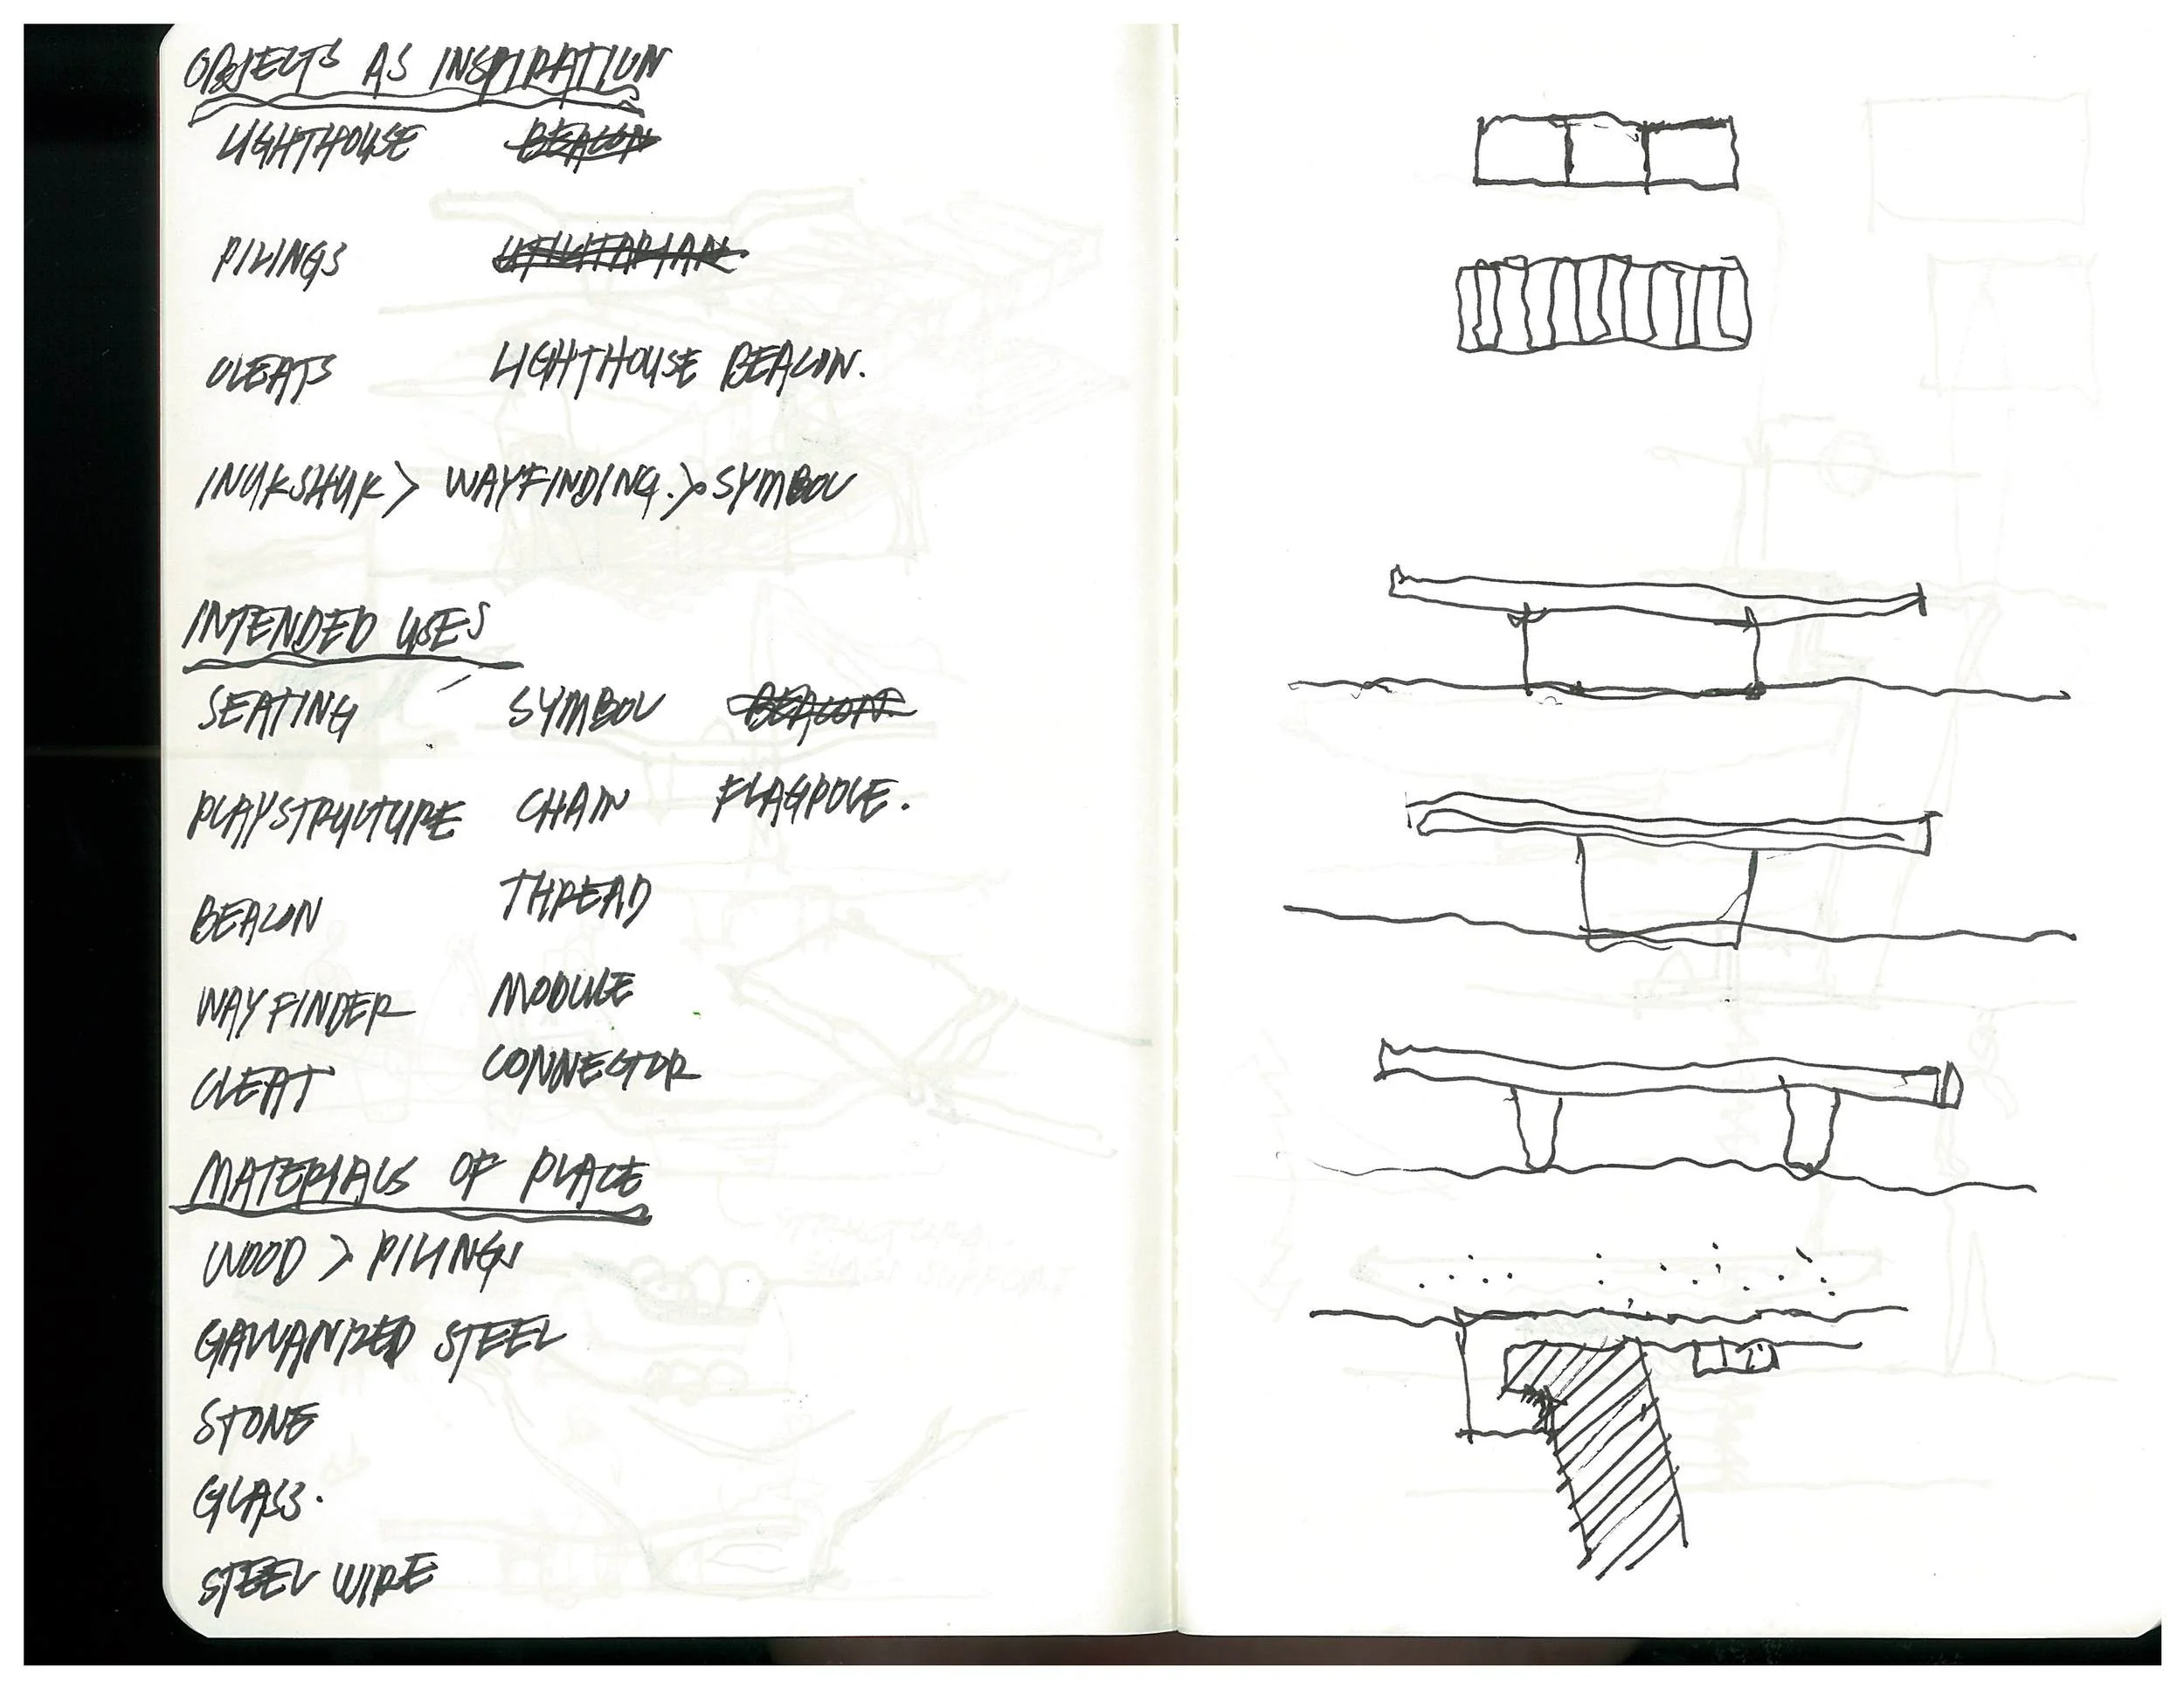 OBJECTS AS INSPIRATION
LIGHTHOUSE BEACON
PILINGS UTILITARIAN
CLEATS LIGHTHOUSE BEACON.
INUKSHUK > WAYFINDING. > SYMBOL
INTENDED USES
SEATING SYMBOL BEACON
PLAYSTRUCTURE CHAIN FLAGPOLE.
BEACON THREAD
WAYFINDER MODULE
CLEAT CONNECTOR
MATERIALS OF PLACE
WOOD > PILINGS
GALVANIZED STEEL
STONE
GLASS.
STEEL WIRE